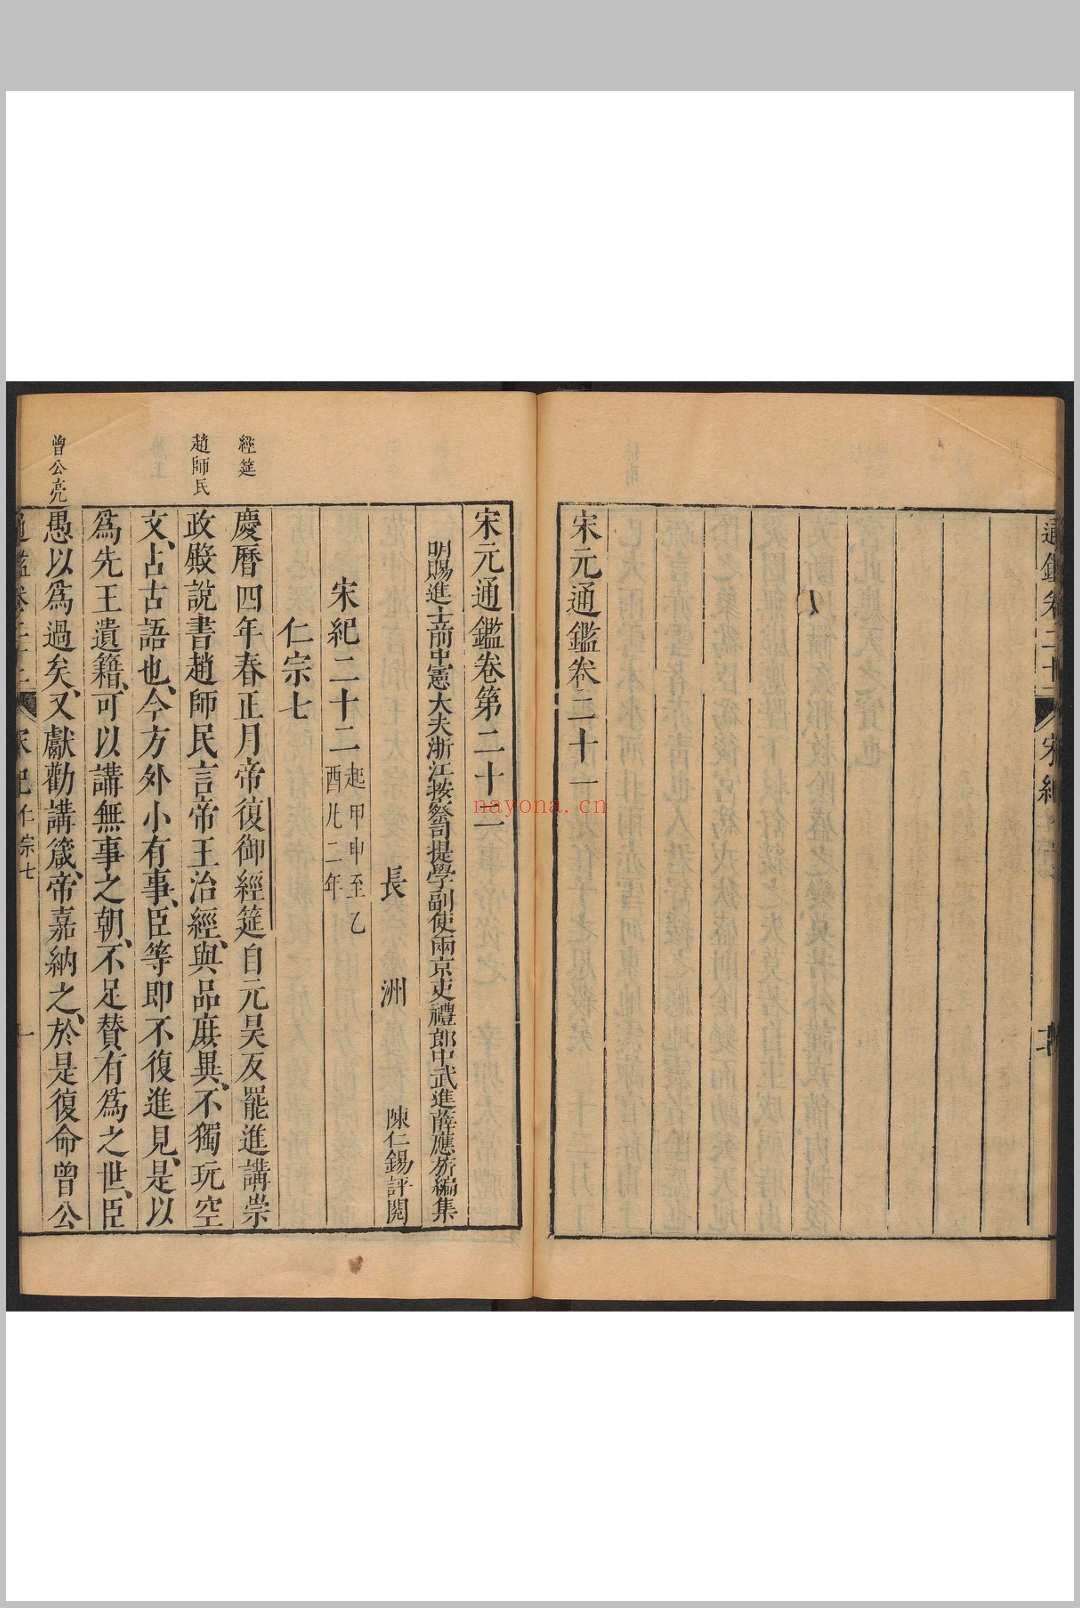 通鑑卷二十一 宋紀
宋元通鑑卷二十一
宋元通鑑卷第二十二
明賜進士前中憲大夫浙江按察司提學副使兩京吏禮郎中武進薛應旂編集
長洲 陳仁錫評閱
宋紀二十二 起甲申至乙酉凡二年
仁宗七
經筵
慶曆四年春正月帝復御經筵自元昊反罷進講崇
趙師民
政殿說書趙師民言帝王治經、與品庶異、不獨玩空
文、占古語也、今方外小有事、臣等即不復進見、是以
為先王遺籍、可以講無事之朝、不足贊有為之世、臣
曾公亮
愚以為過矣、又獻勸講箴、帝嘉納之、於是復命曾公
通鑑卷二十二 宋紀 仁宗七 一
nayona.cn